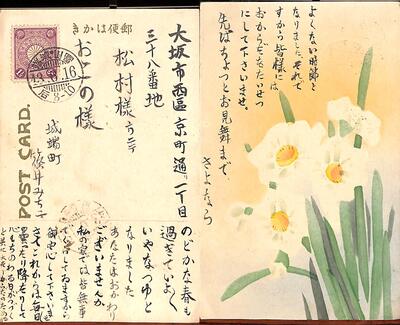 郵便はかき
POST CARD.
大坂市西區京町通一丁目
三十八番地
松村様方ニテ
おとの様
城端町
のどかな春も
過ぎていよ〱
いやなつゆと
なりました
あなたはおかわり
ございませんか
私の家では皆無事
さてこれからは毎日
曇ったり降たりして
よくない時節と
なりました。それで
すから皆様には
おからだもたいせつ
にして下さいませ。
先はちょっとお見舞まで、
さよなら